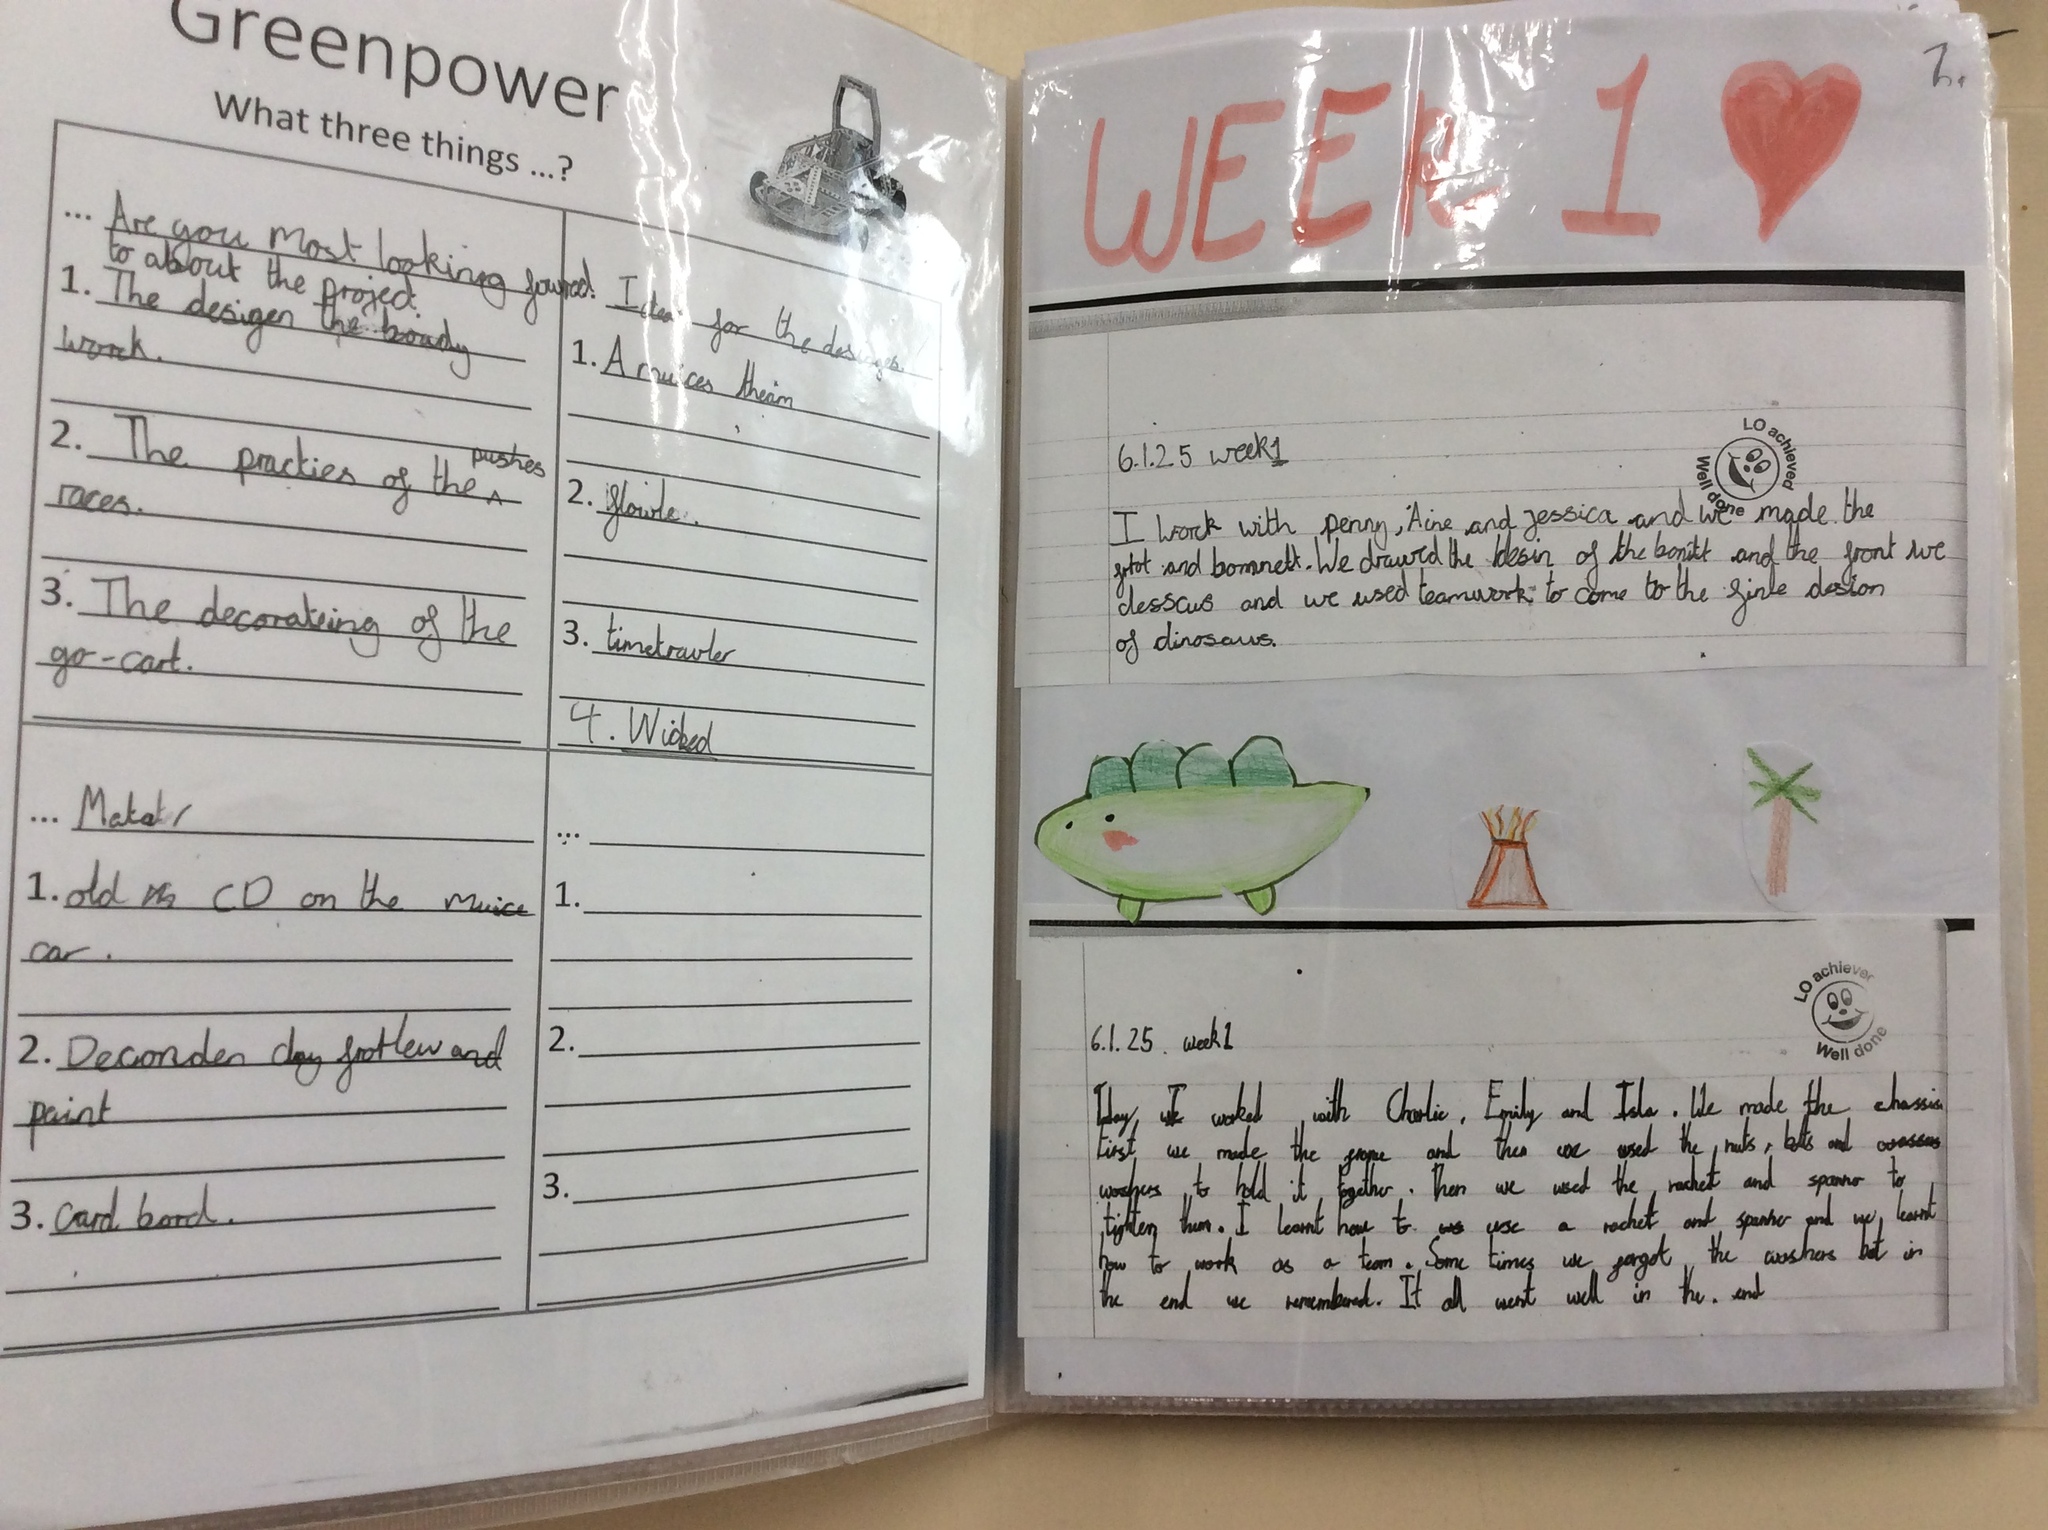 Greenpower
What three things ...?
... Are you most looking
to about the project.
1. The desigen the boady
work.
2. The practies of the pushes
races.
3. The decorateing of the
go-cart.
Idea for the desinges!
1. A muices theam
2. glowle.
3. timetravler
4. Wicked
...
1. old CD on the muice
car.
2. and
paint
3. card bord.
...
1.
2.
3.
WEEK 1
6.1.25 week1
LO achieved
Well done
I work with penny, Aine and Jessica and we made the
and bonnett. We drawed the desin of the bonitt and the front we
desscus and we used teamwork to come to the finle desion
of dinosaws.
6.1.25. week1
LO achiever
Well done
Today, I worked with Charlie, Emily and Isla. We made the chassis
First we made the frame and then we used the nuts, bolts and
washers to hold it together. Then we used the rachet and spanner to
tighten them. I learnt how to use a rachet and spanner and we learnt
how to work as a team. Some times we forgot the washers but in
the end we remembered. It all went well in the. end